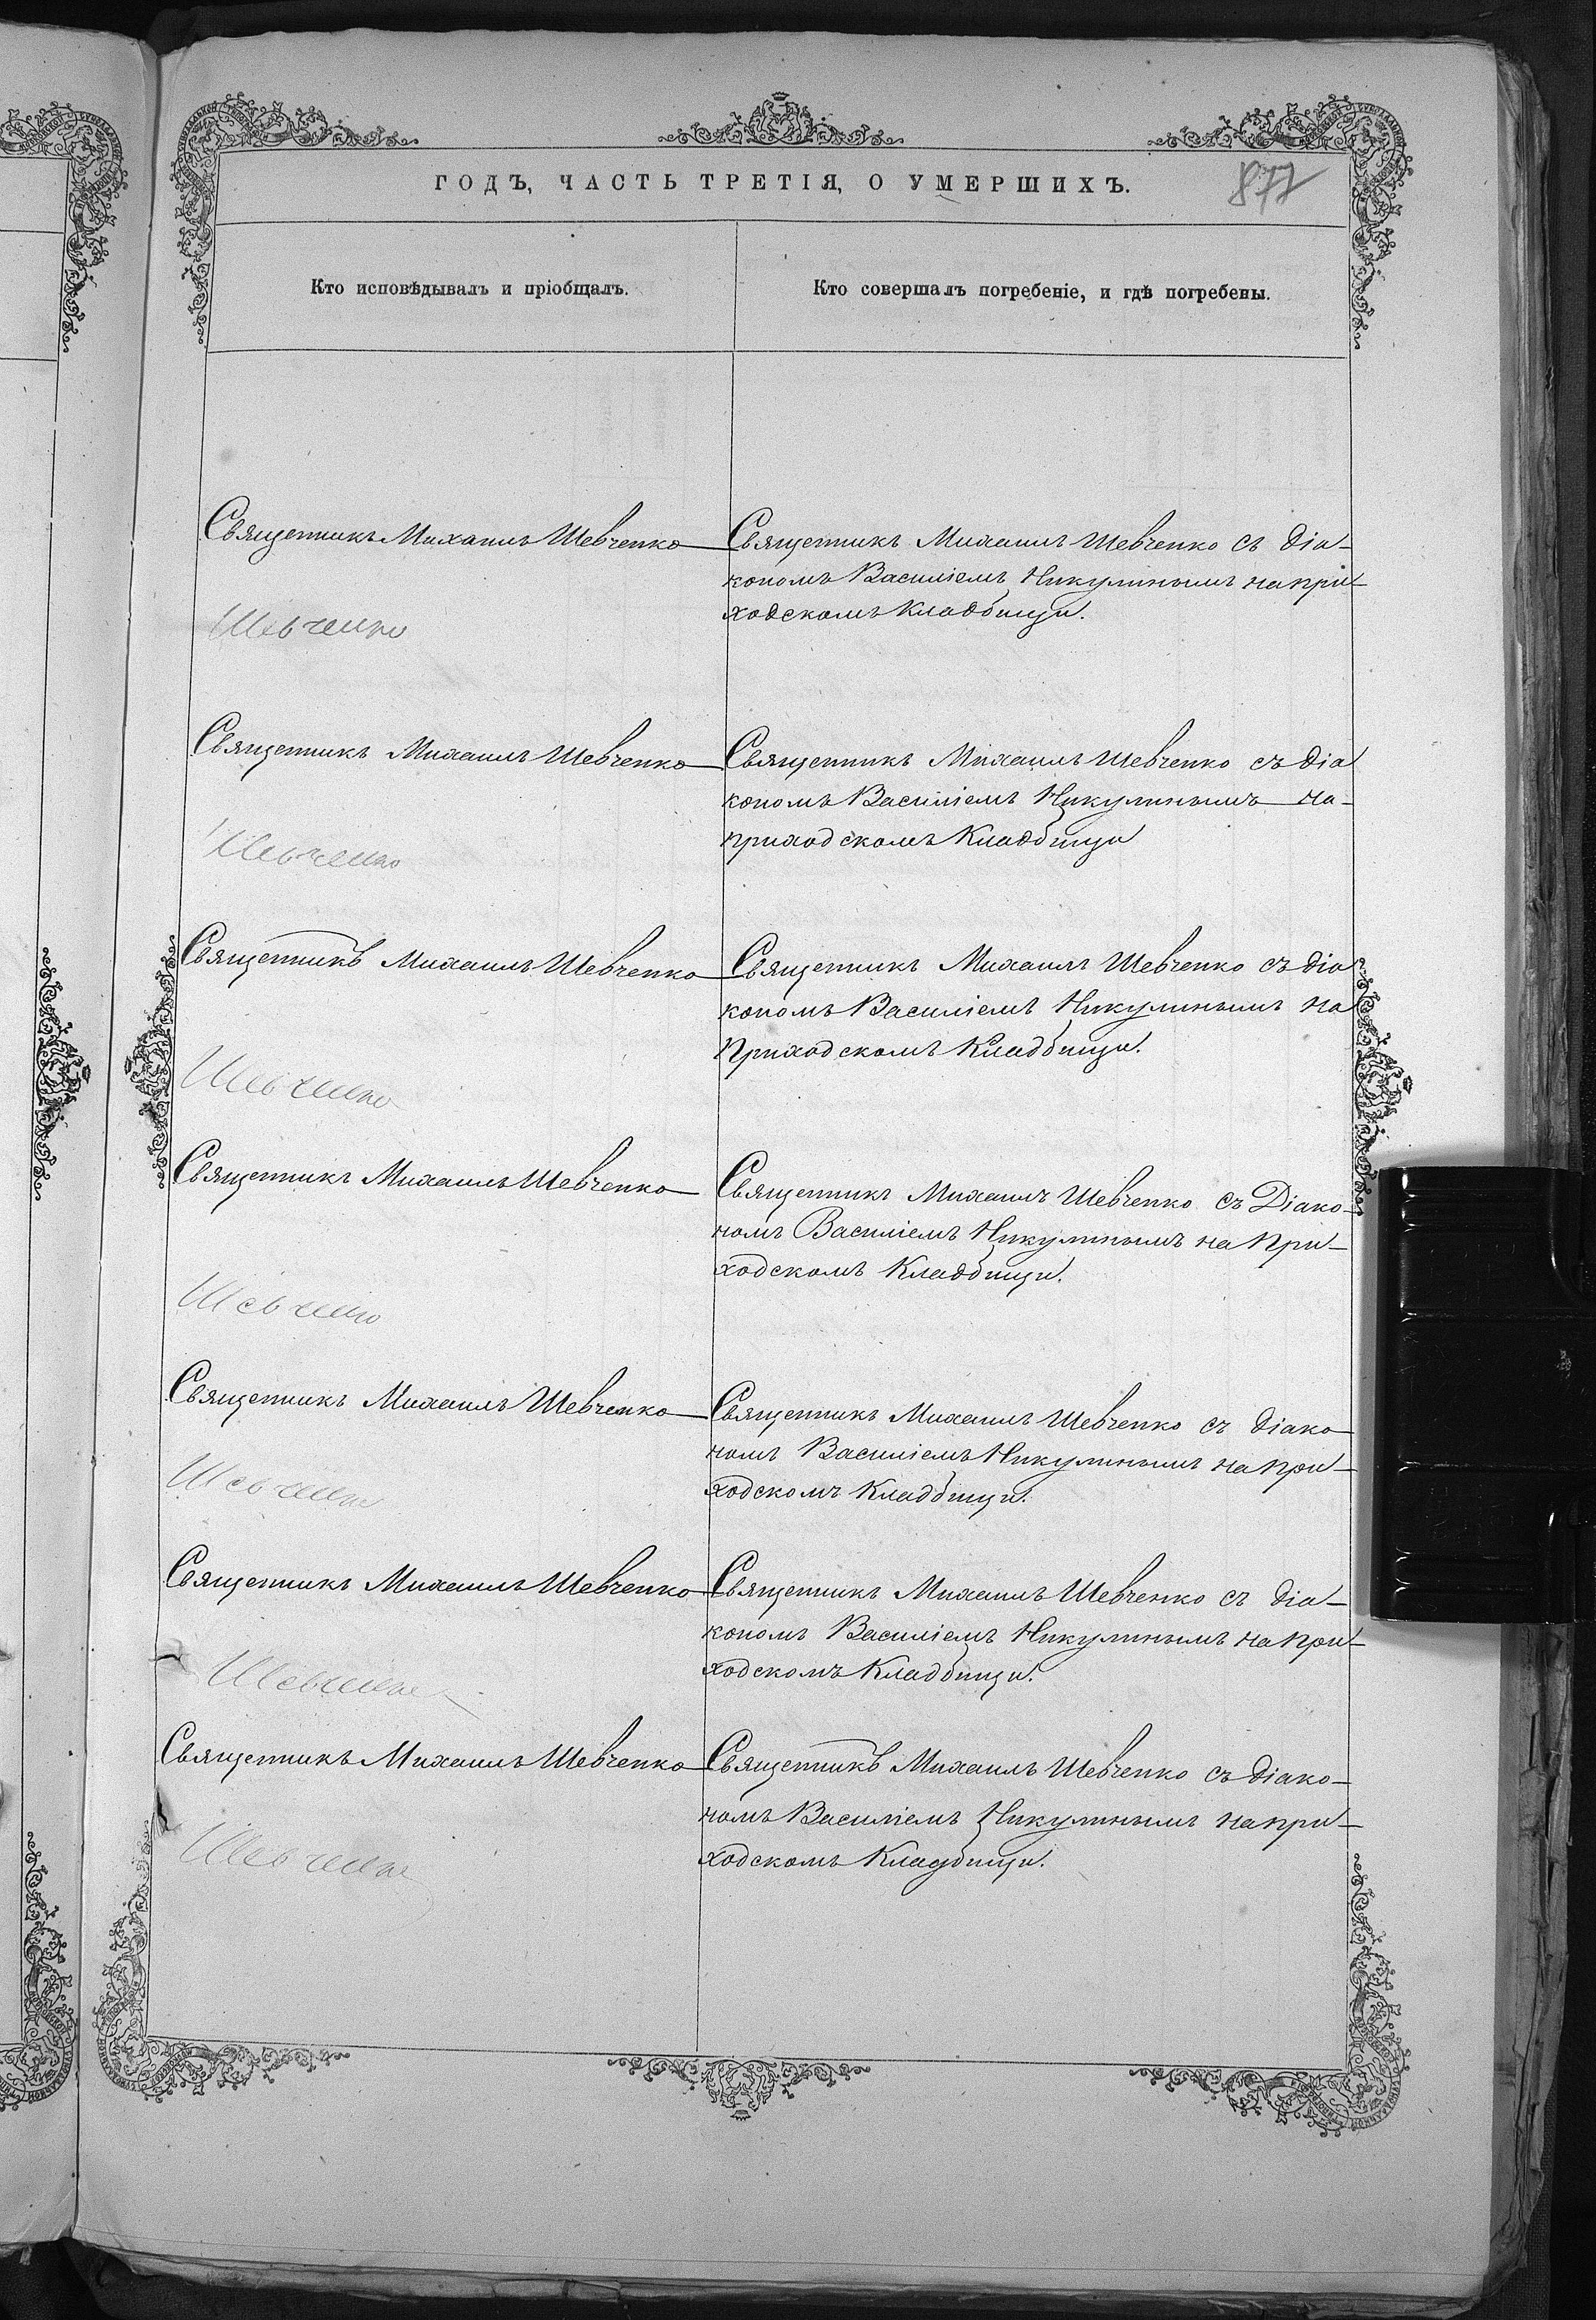 ГОДЪ, ЧАСТЬ ТРЕТІЯ, О УМЕРШИХЪ.
877
Кто исповѣдывалъ и пріобщалъ.
Кто совершалъ погребеніе, и гдѣ погребены.
Священникъ Михаилъ Шевченко
Шевченко
Священникъ Михаилъ Шевченко съ діа-
кономъ Василіемъ Никулинымъ на при-
ходскомъ Кладбищи.
Священникъ Михаилъ Шевченко
Шевченко
Священникъ Михаилъ Шевченко съ діа
кономъ Василіемъ Никулинымъ на-
приходскомъ Кладбищи
Священникъ Михаилъ Шевченко
Шевченко
Священникъ Михаилъ Шевченко съ діа
кономъ Василіемъ Никулинымъ на
Приходскомъ Кладбищи.
Священникъ Михаилъ Шевченко
Шевченко
Священникъ Михаилъ Шевченко съ Діако-
номъ Василіемъ Никулинымъ на При-
ходскомъ Кладбищи.
Священникъ Михаилъ Шевченко
Шевченко
Священникъ Михаилъ Шевченко съ діако
номъ Василіемъ Никулинымъ на При-
ходскомъ Кладбищи.
Священникъ Михаилъ Шевченко
Шевченко
Священникъ Михаилъ Шевченко съ діа-
кономъ Василіемъ Никулинымъ на При-
ходскомъ Кладбищи.
Священникъ Михаилъ Шевченко
Шевченко
Священникъ Михаилъ Шевченко съ діако-
номъ Василіемъ Никулинымъ на при-
ходскомъ Кладбищи.